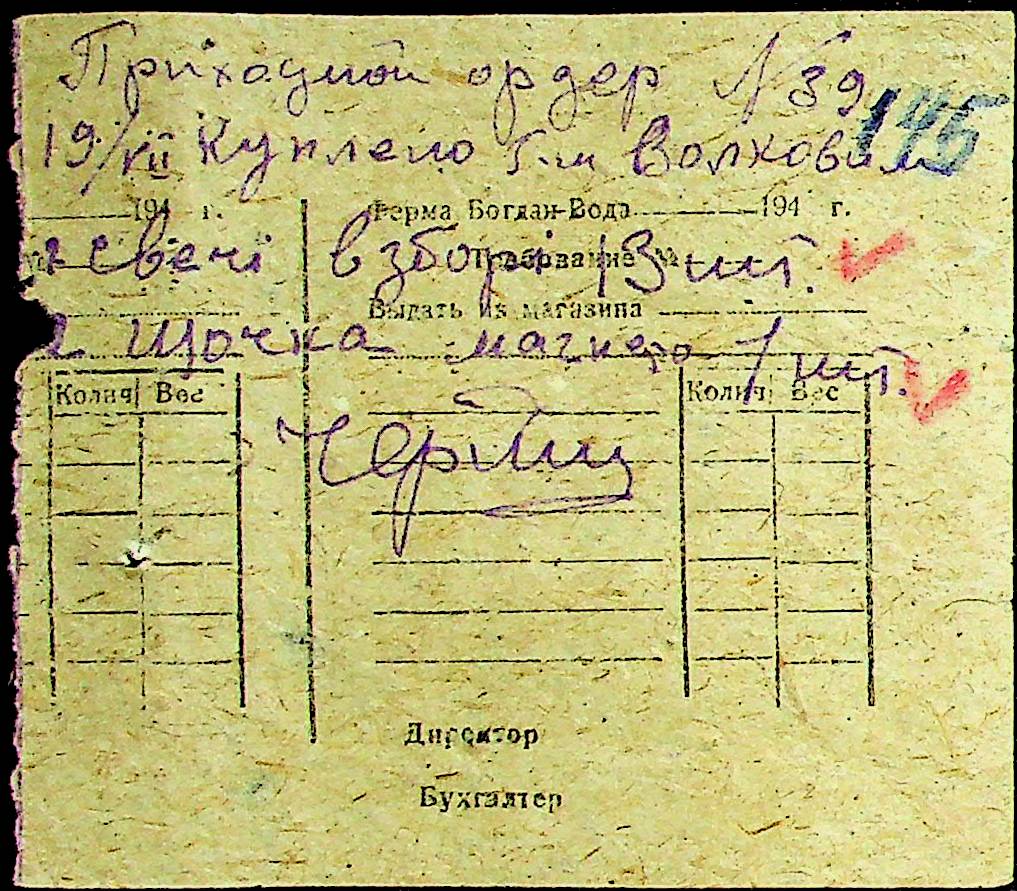 Приходной ордер № 39
145
19/VII Куплено т-м Волковим
194 г.
Ферма Богдан-Вода 194 г.
1 свечі в зборі 13 шт.
Требование №
Выдать из магазина
2 Щочка магнето 1 шт.
Колич Вес
Колич Вес
Директор
Бухгалтер